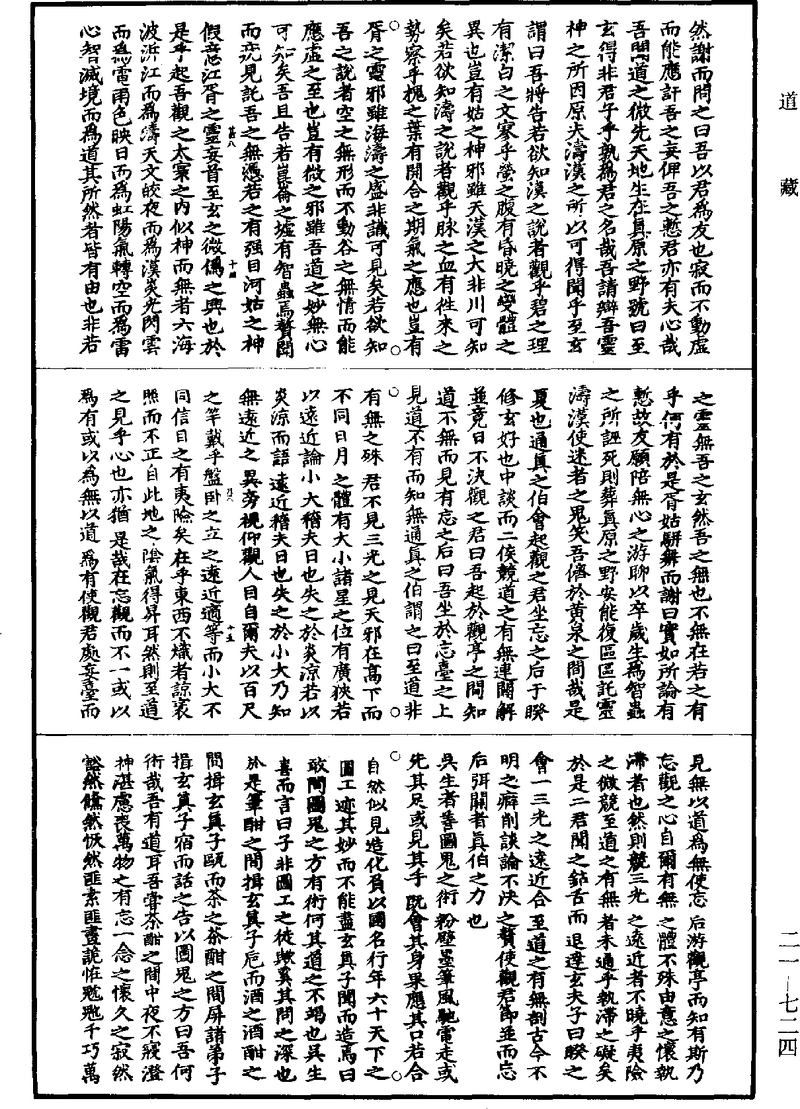 道藏
然謝而問之曰吾以君爲友也寂而不動虛
而能應訐吾之妄俾吾之慙君亦有夫心哉
吾聞道之微先天地生在眞原之野號曰至
玄得非君子乎孰爲君之名哉吾請辯吾靈
神之所因原夫濤漢之所以可得聞乎至玄
謂曰吾將告若欲知漢之說者觀乎碧之理
有潔白之文察乎瑩之腹有昏曉之變體之
異也豈有姑之神邪雖天漢之大非川可知
矣若欲知濤之說者觀乎脉之血有往來之
勢察乎槐之葉有開合之期氣之應也豈有
胥之靈邪雖海濤之盛非識可見矣若欲知
吾之說者空之無形而不動谷之無情而能
應虛之至也豈有微之邪雖吾道之妙無心
可知矣吾且告若崑崙之墟有智蟲焉聞
而見託吾之無憑若之有强目河姑之神
甚八 十四
假意江胥之靈妄首至玄之微僞之興也於
是乎起吾觀之太寥之內似神而無者六海
波沂江而爲濤天文皎夜而爲漢炎光閃雲
而爲電雨色映日而爲虹陽氣轉空而爲雷
心智滅境而爲道其所然者皆有由也非若
之靈無吾之玄然吾之無也不無在若之有
乎何有於是胥姑駢而謝曰實如所論有
慙故友願陪無心之游聊以卒歲生爲智蟲
之所誣死則葬眞原之野安能復區區託靈
濤漢使迷者之鬼矣吾儕於黃泉之間哉是
夏也通眞之伯會起觀之君坐忘之后于睽
修玄好也中談而二俟競道之有無連關解
並竟日不決觀之君曰吾起於觀亭之間知
道不無而見有忘之后曰吾坐於忘臺之上
見道不有而知無通眞之伯謂之曰至道非
有無之殊君不見三光之見天邪在高下而
不同日月之體有大小諸星之位有廣狹若
以遠近論小大稽夫日也失之於炎涼若以
炎涼而語遠近稽夫日也失之於小大乃知
無遠近之異旁視仰觀人目自爾夫以百尺
十五
之竿戴乎盤卧之立之遠近適等而小大不
同信目之有夷險矣在乎東西不熾者諒衺
照而不正自此地之陰氣得昇耳然則至道
之見乎心也亦猶是哉在忘觀而不一或以
爲有或以爲無以道爲有使觀君處妄臺而
見無以道爲無使忘后游觀亭而知有斯乃
忘觀之心自爾有無之體不殊由意之懷執
滯者也然則競三光之遠近者不曉乎夷險
之微競至道之有無者未通乎執滯之礙矣
於是二君聞之鉆舌而退達玄夫子曰睽之
會一三光之遠近合至道之有無剖古今不
明之癖削談論不決之贅使觀君節並而忘
后弭關者眞伯之力也
吳生者善圖鬼之術粉壁墨筆風馳電走或
先其足或見其手旣會其身果應其口若合
自然似見造化負以國名行年六十天下之
圖工迹其妙而不能盡玄眞子聞而造焉曰
敢問圖鬼之方有術何其道之不竭也吳生
喜而言曰子非圖工之徒歟奚其問之深也
於是筆酣之間揖玄眞子卮而酒之酒酣之
間揖玄眞子甌而茶之茶酣之間屏諸弟子
揖玄眞子宿而話之告以圖鬼之方曰吾何
術哉吾有道耳吾嘗茶酣之間中夜不寢澄
神湛慮喪萬物之有忘一念之懷久之寂然
豁然儵然恍然匪素匪畫詭怪魑魅千巧萬
二一—七二四